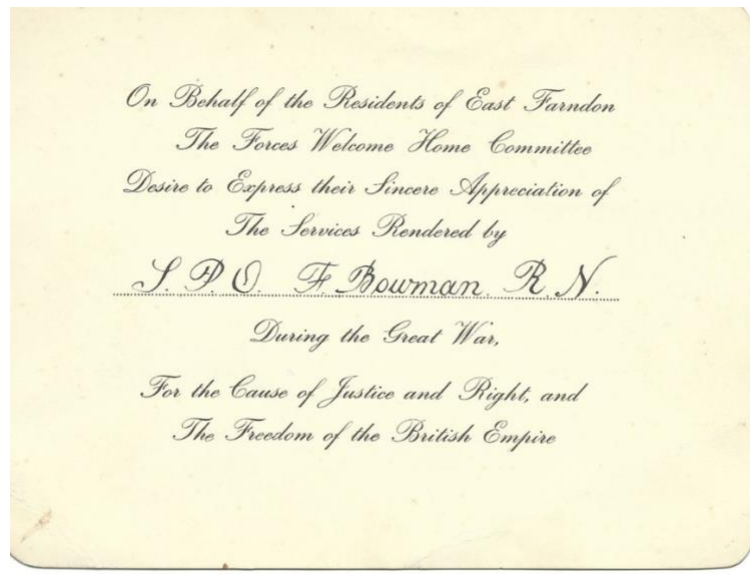 On Behalf of the Residents of East Farndon
The Forces Welcome Home Committee
Desire to Express their Sincere Appreciation of
The Services Rendered by
S. P. O. F. Bowman, R. N.
During the Great War,
For the Cause of Justice and Right, and
The Freedom of the British Empire